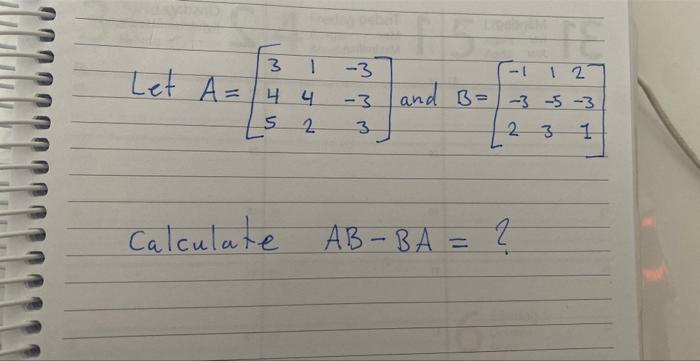 Let A = [3 1 -3; 4 4 -3; 5 2 3] and B = [-1 1 2; -3 -5 -3; 2 3 1]
Calculate AB - BA = ?